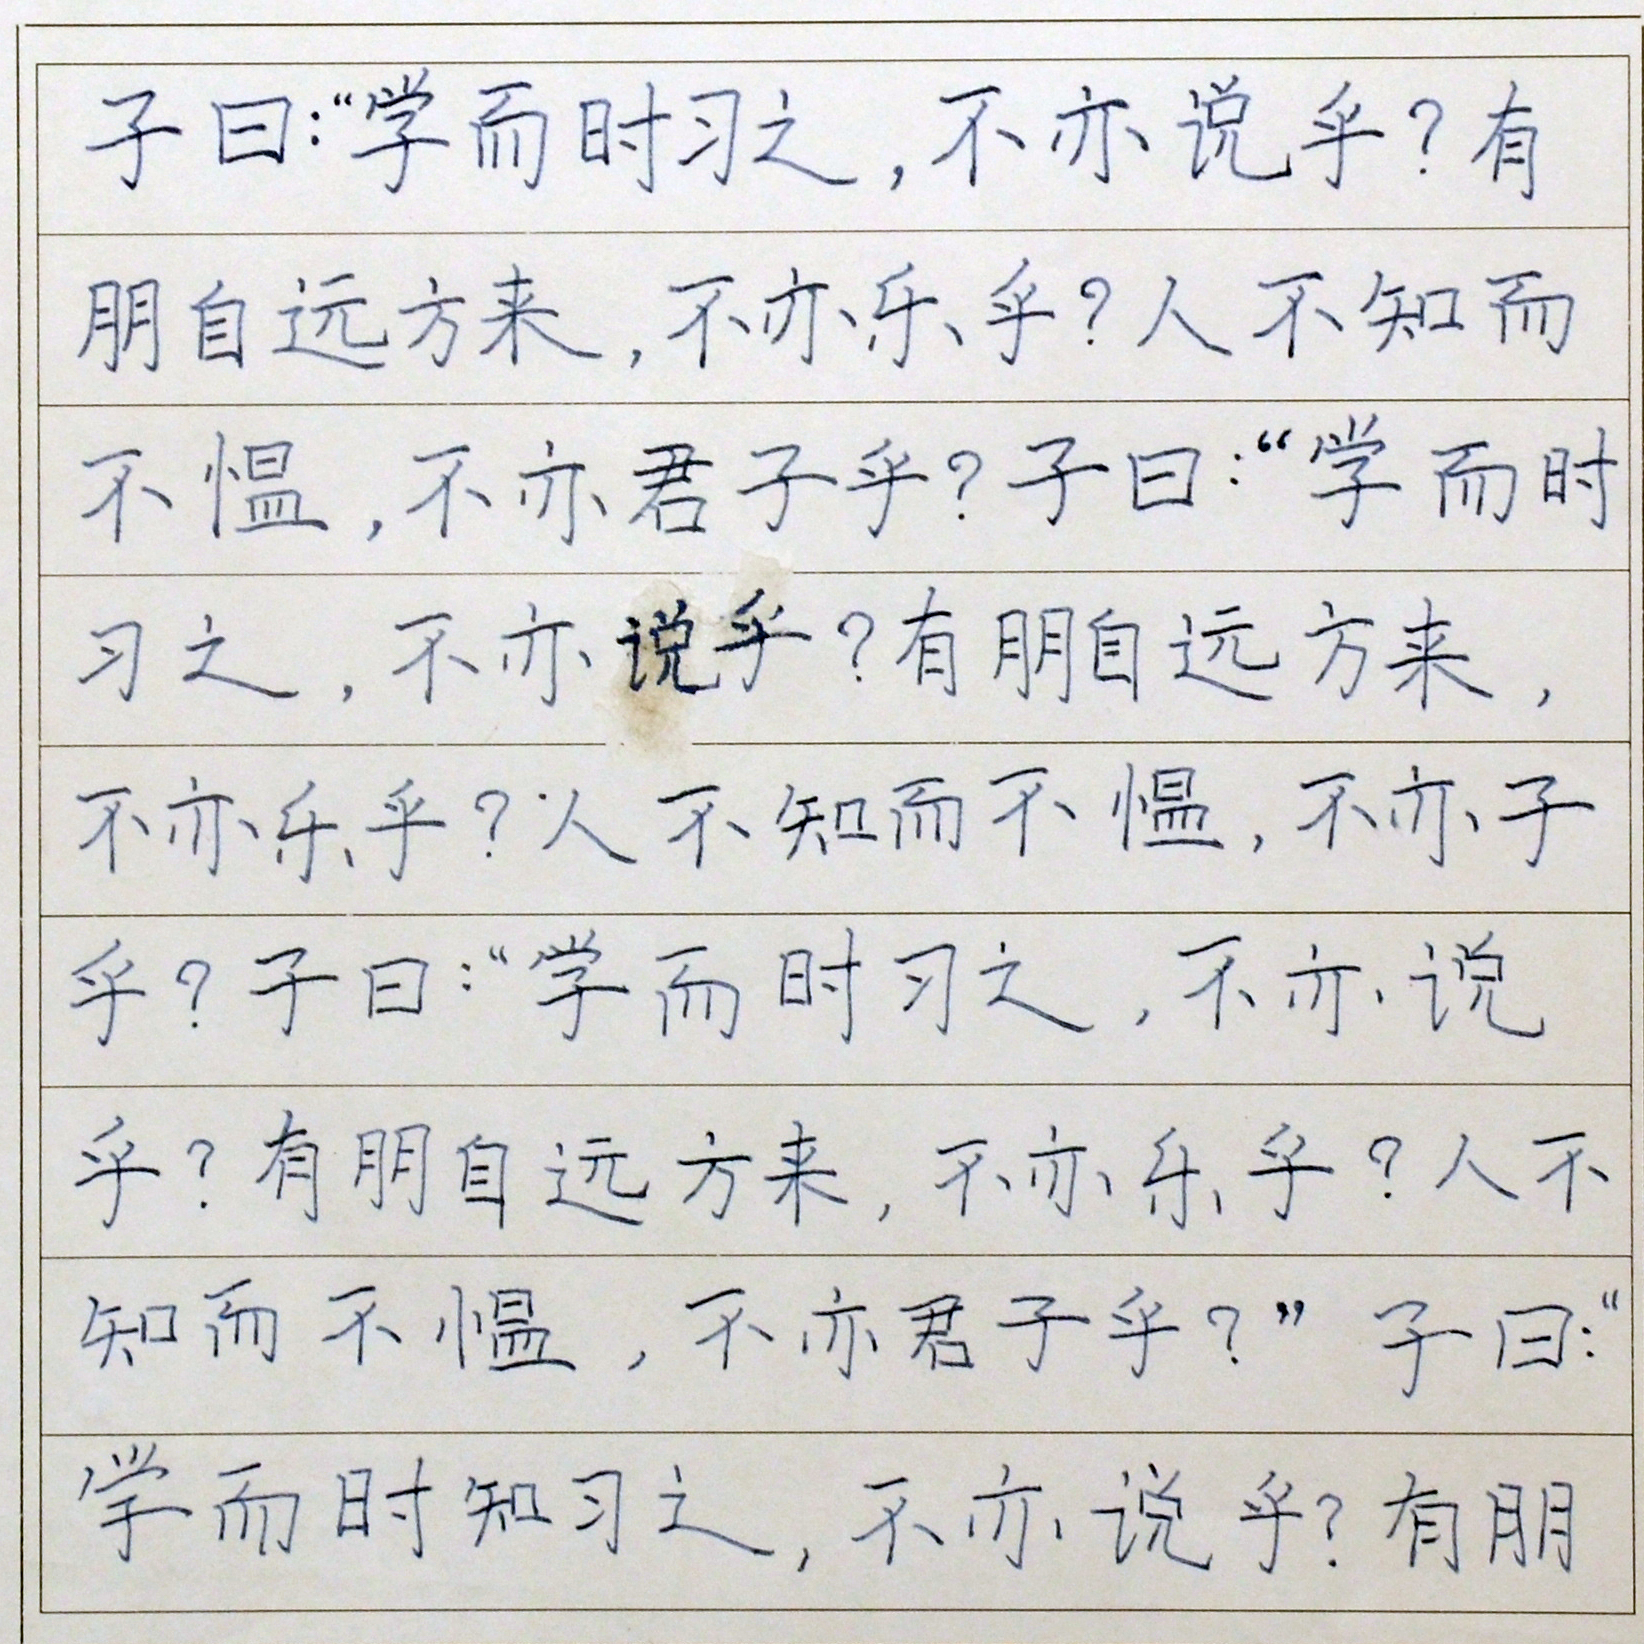 子曰:“学而时习之,不亦说乎?有
朋自远方来,不亦乐乎?人不知而
不愠,不亦君子乎?子曰:“学而时
习之,不亦说乎?有朋自远方来,
不亦乐乎?人不知而不愠,不亦子
乎?子曰:“学而时习之,不亦说
乎?有朋自远方来,不亦乐乎?人不
知而不愠,不亦君子乎?”子曰:“
学而时知习之,不亦说乎?有朋